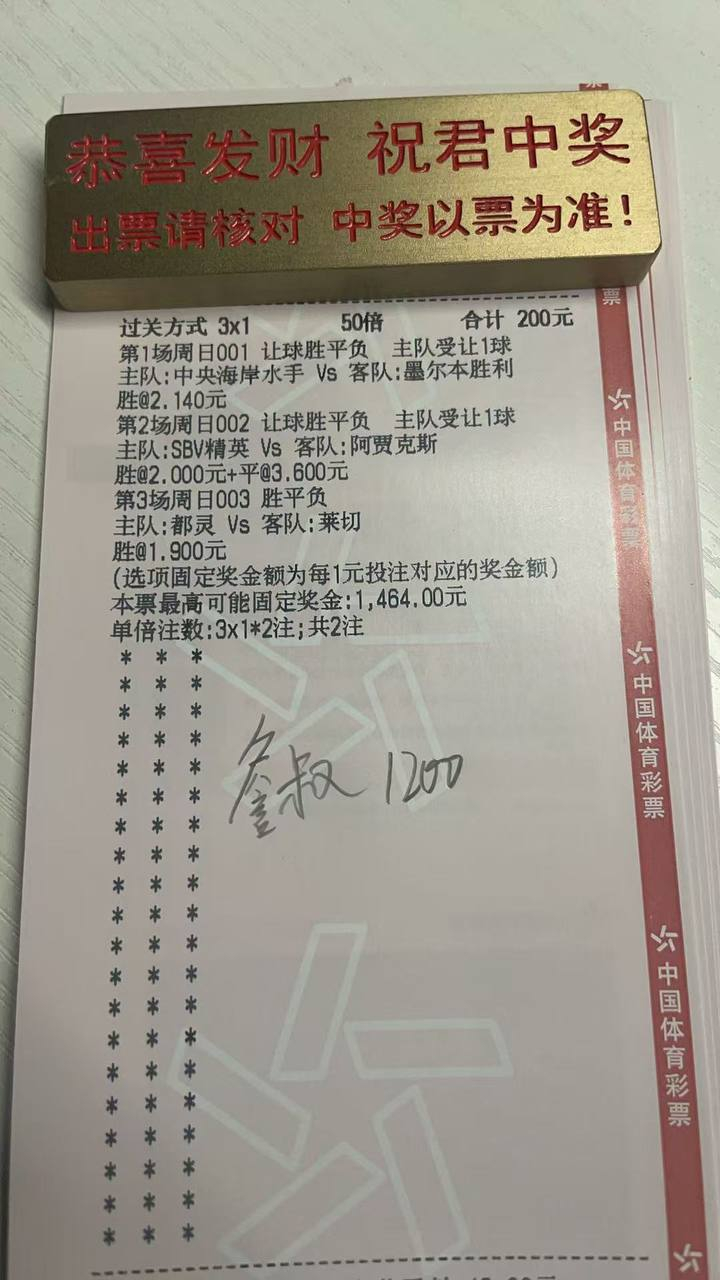 恭喜发财 祝君中奖
出票请核对 中奖以票为准！
过关方式 3x1 50倍 合计 200元
第1场周日001 让球胜平负 主队受让1球
主队:中央海岸水手 Vs 客队:墨尔本胜利
胜@2.140元
第2场周日002 让球胜平负 主队受让1球
主队:SBV精英 Vs 客队:阿贾克斯
胜@2.000元+平@3.600元
第3场周日003 胜平负
主队:都灵 Vs 客队:莱切
胜@1.900元
(选项固定奖金额为每1元投注对应的奖金额)
本票最高可能固定奖金:1,464.00元
单倍注数:3x1*2注;共2注
* * *
* * *
* * *
* * *
* * *
* * *
* * *
* * *
* * *
* * *
* * *
* * *
* * *
* * *
* * *
* * *
* * *
* * *
* * *
* * *
叔 1200
票
票
中国体育彩票
中国体育彩票
中国体育彩票